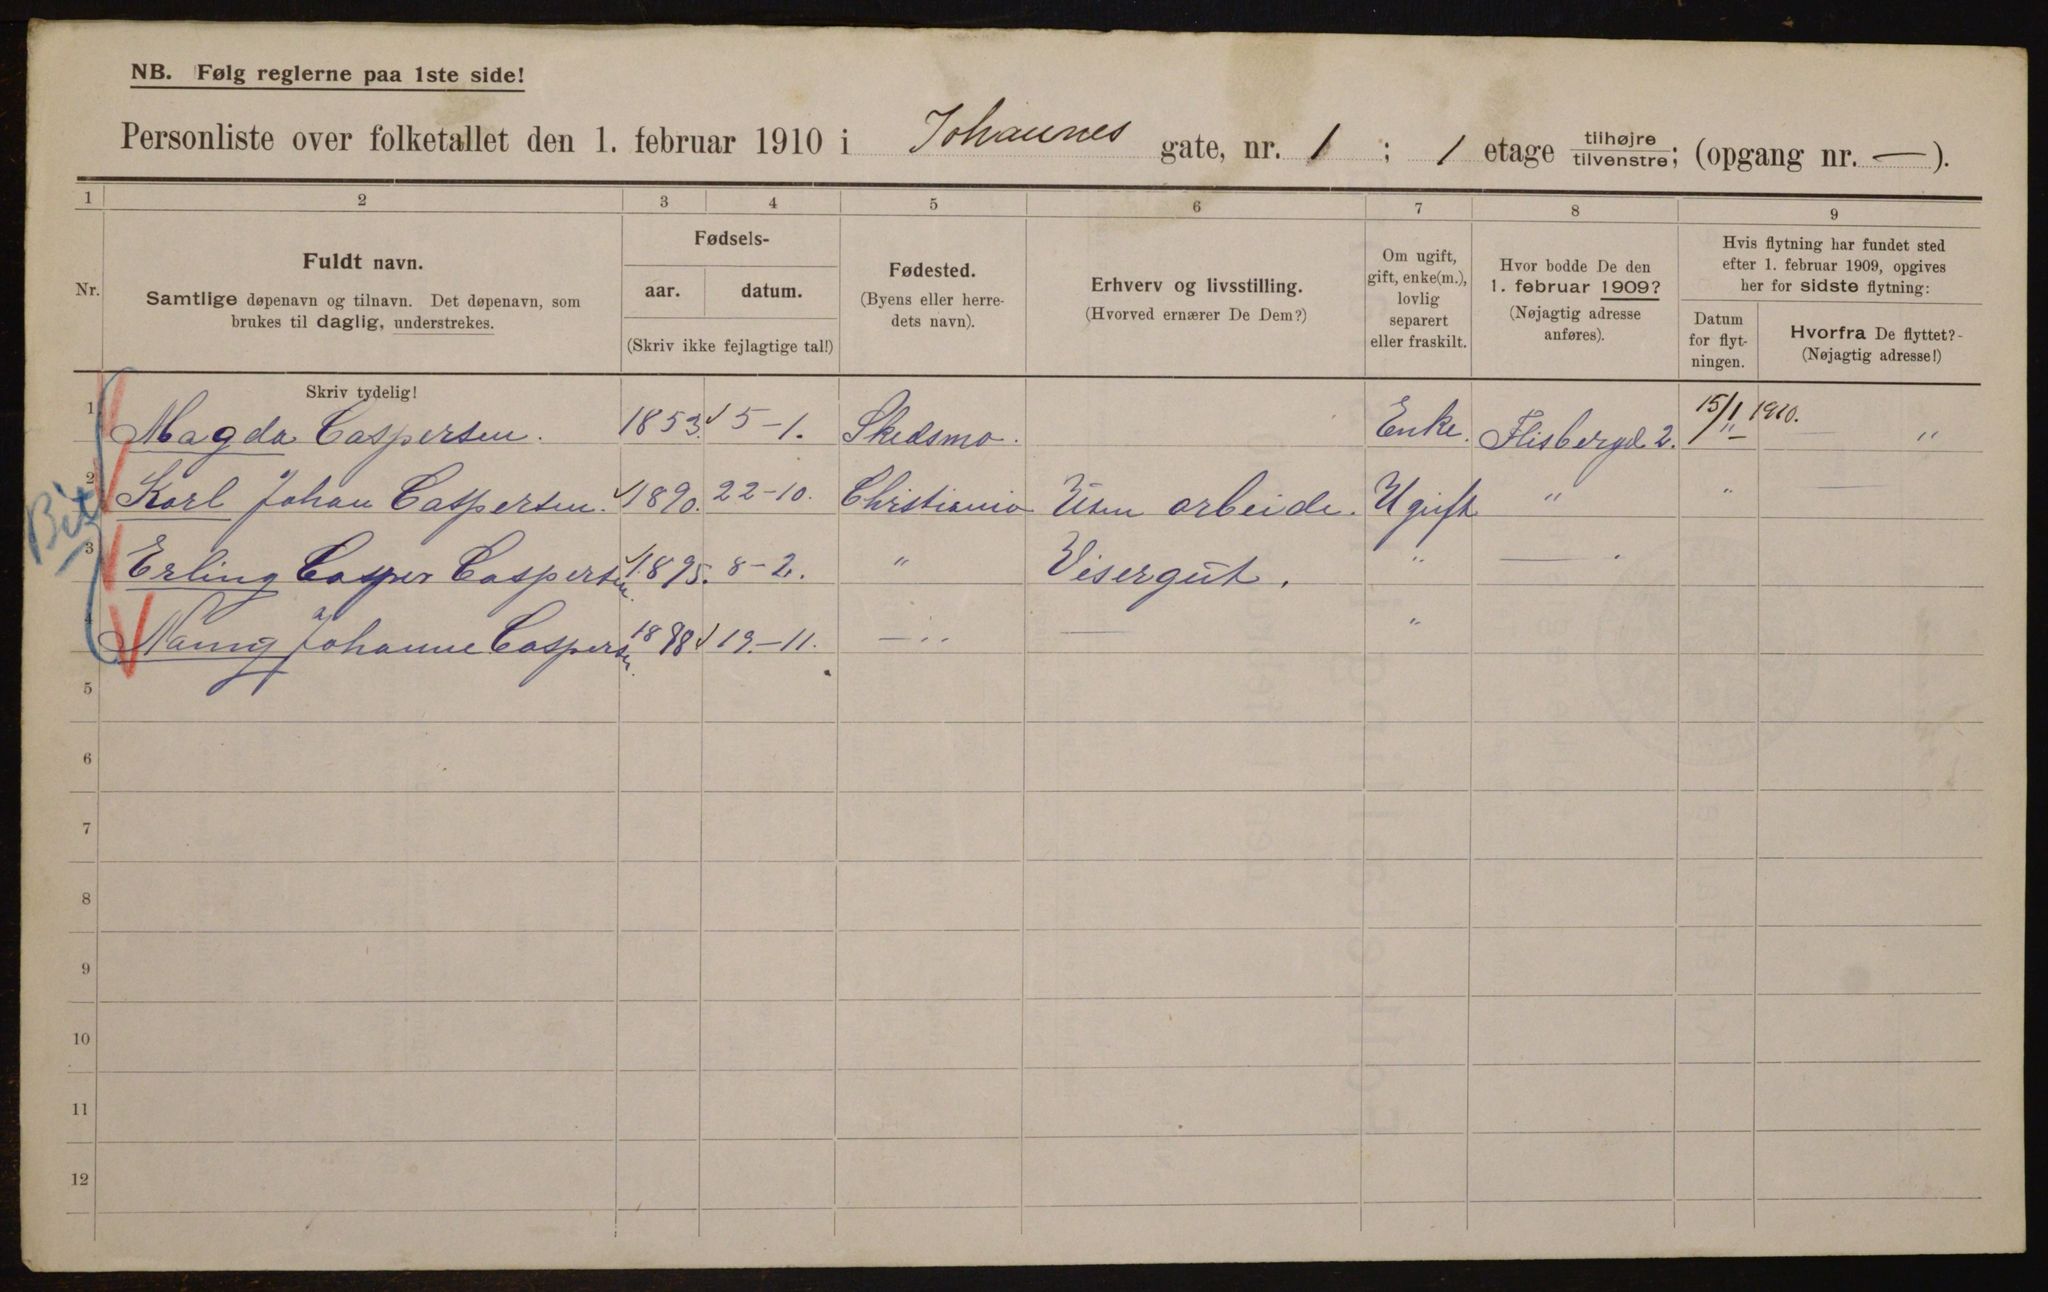 NB. Følg reglerne paa 1ste side!
Personliste over folketallet den 1. februar 1910 i Johannes gate, nr. 1 ; 1 etage tilhøjre tilvenstre; (opgang nr. — ).
1 2 3 4 5 6 7 8 9
Nr.
Fuldt navn.
Samtlige døpenavn og tilnavn. Det døpenavn, som
brukes til daglig, understrekes.
Fødsels-
aar. datum.
(Skriv ikke fejlagtige tal!)
Fødested.
(Byens eller herre-
dets navn).
Erhverv og livsstilling.
(Hvorved ernærer De Dem?)
Om ugift,
gift, enke(m.),
lovlig
separert
eller fraskilt.
Hvor bodde De den
1. februar 1909?
(Nøjagtig adresse
anføres).
Hvis flytning har fundet sted
efter 1. februar 1909, opgives
her for sidste flytning:
Datum
for flyt-
ningen.
Hvorfra De flyttet?
(Nøjagtig adresse!)
Skriv tydelig!
1 Magda Caspersen. 1853. 5-1. Skedsmo. Enke. Flisbergd 2. 15/1 1910. "
2 Karl Johan Caspersen. 1890. 22-10. Christiania Uten arbeide. Ugift " "
3 Erling Casper Caspersen. 1895. 8-2. " Visergut. " — "
4 Nanny Johanne Caspersen. 1898 19.-11. — " — "
5
6
7
8
9
10
11
12